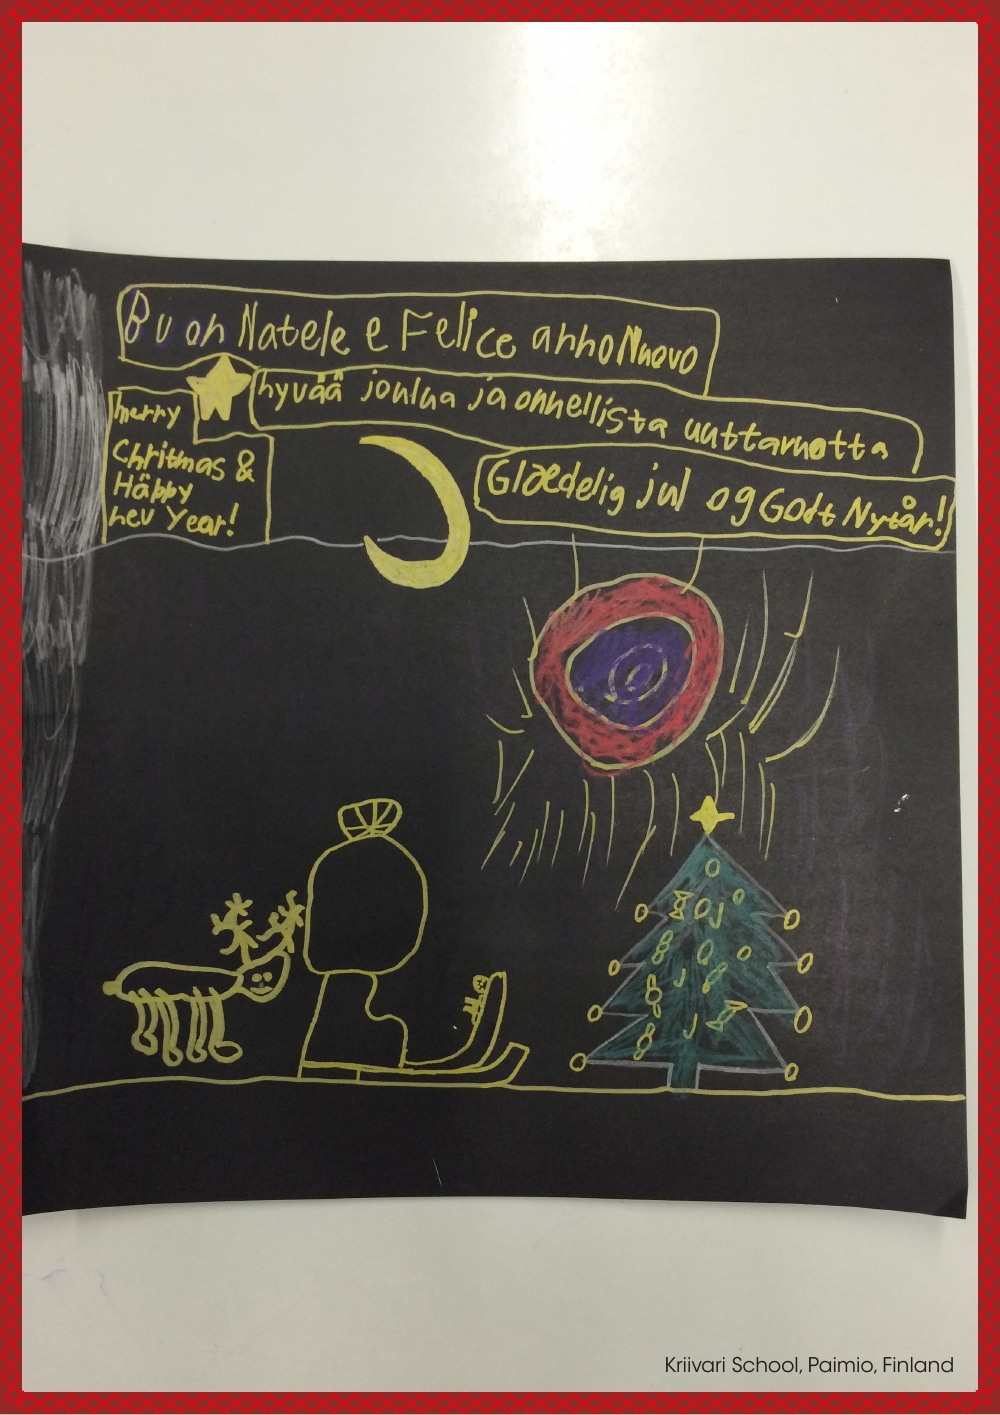 Buon Natele e Felice anno Nuovo
hyvää joulua ja onnellista uuttavuotta
merry
Chritmas &
Häppy
neu Year!
Glædelig jul og Godt Nytår!
Kriivari School, Paimio, Finland